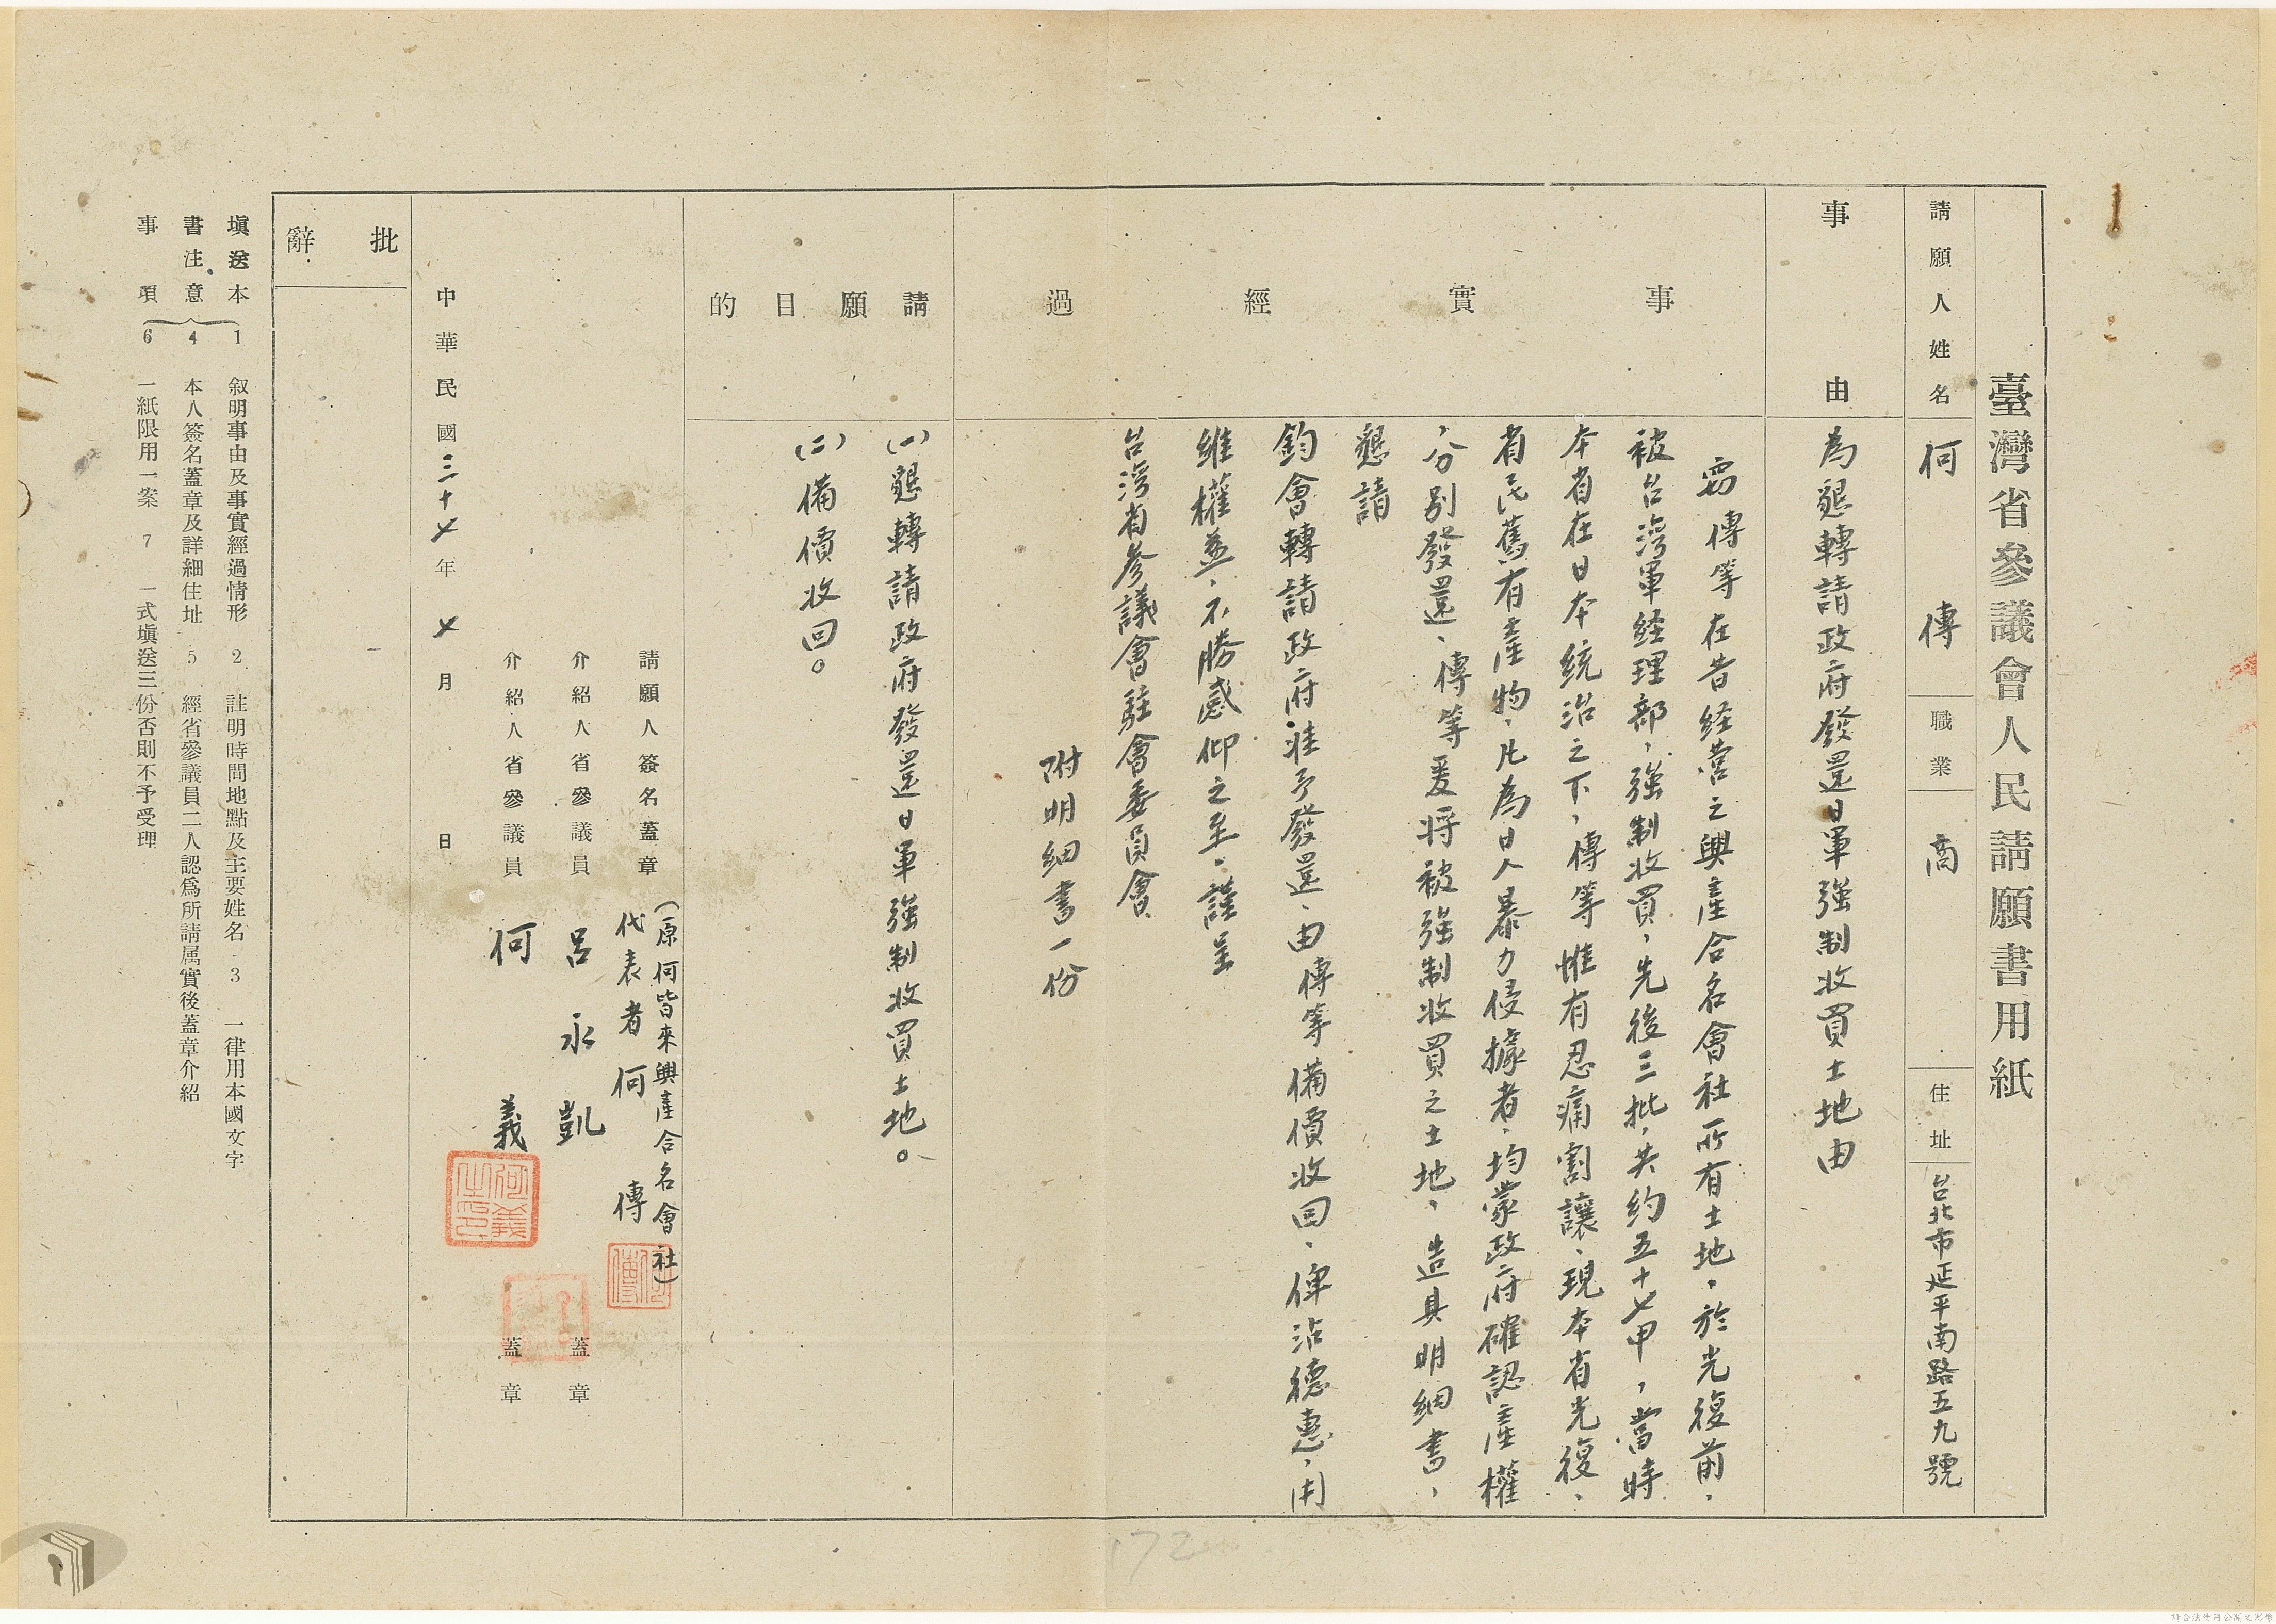 臺灣省參議會人民請願書用紙
請願人姓名 何傳 職業 商 住址 台北市延平南路五九號
事由 為懇轉請政府發還日軍強制收買土地由
事實經過
竊傳等在昔経营之興產合名會社所有土地，於光復前，
被台湾軍経理部，強制收買，先後三批，共約五十七甲，當時
本省在日本統治之下，傳等惟有忍痛割讓、現本省光復、
省民舊有產物，凡為日人暴力侵據者、均蒙政府確認產權
，分別發還、傳等爰将被強制收買之土地、造具明細書，
懇請
鈞會轉請政府准予發還、由傳等備價收回、俾沾德惠，用
維權益、不勝感仰之至、謹呈
台湾省參議會駐會委員會
附明細書一份
請願目的
(一)懇轉請政府發還日軍強制收買土地。
(二)備價收回。
請願人簽名蓋章 (原何皆來興產合名會社)
代表者何傳
介紹人省參議員 呂永凱 蓋章
介紹人省參議員 何義 蓋章
何義之印
中華民國三十七年七月 日
批辭
填送本書注意事項
1 叙明事由及事實經過情形 2 註明時間地點及主要姓名 3 一律用本國文字
4 本人簽名蓋章及詳細住址 5 經省參議員二人認爲所請属實後蓋章介紹
6 一紙限用一案 7 一式填送三份否則不予受理
172
請合法使用公開之影像